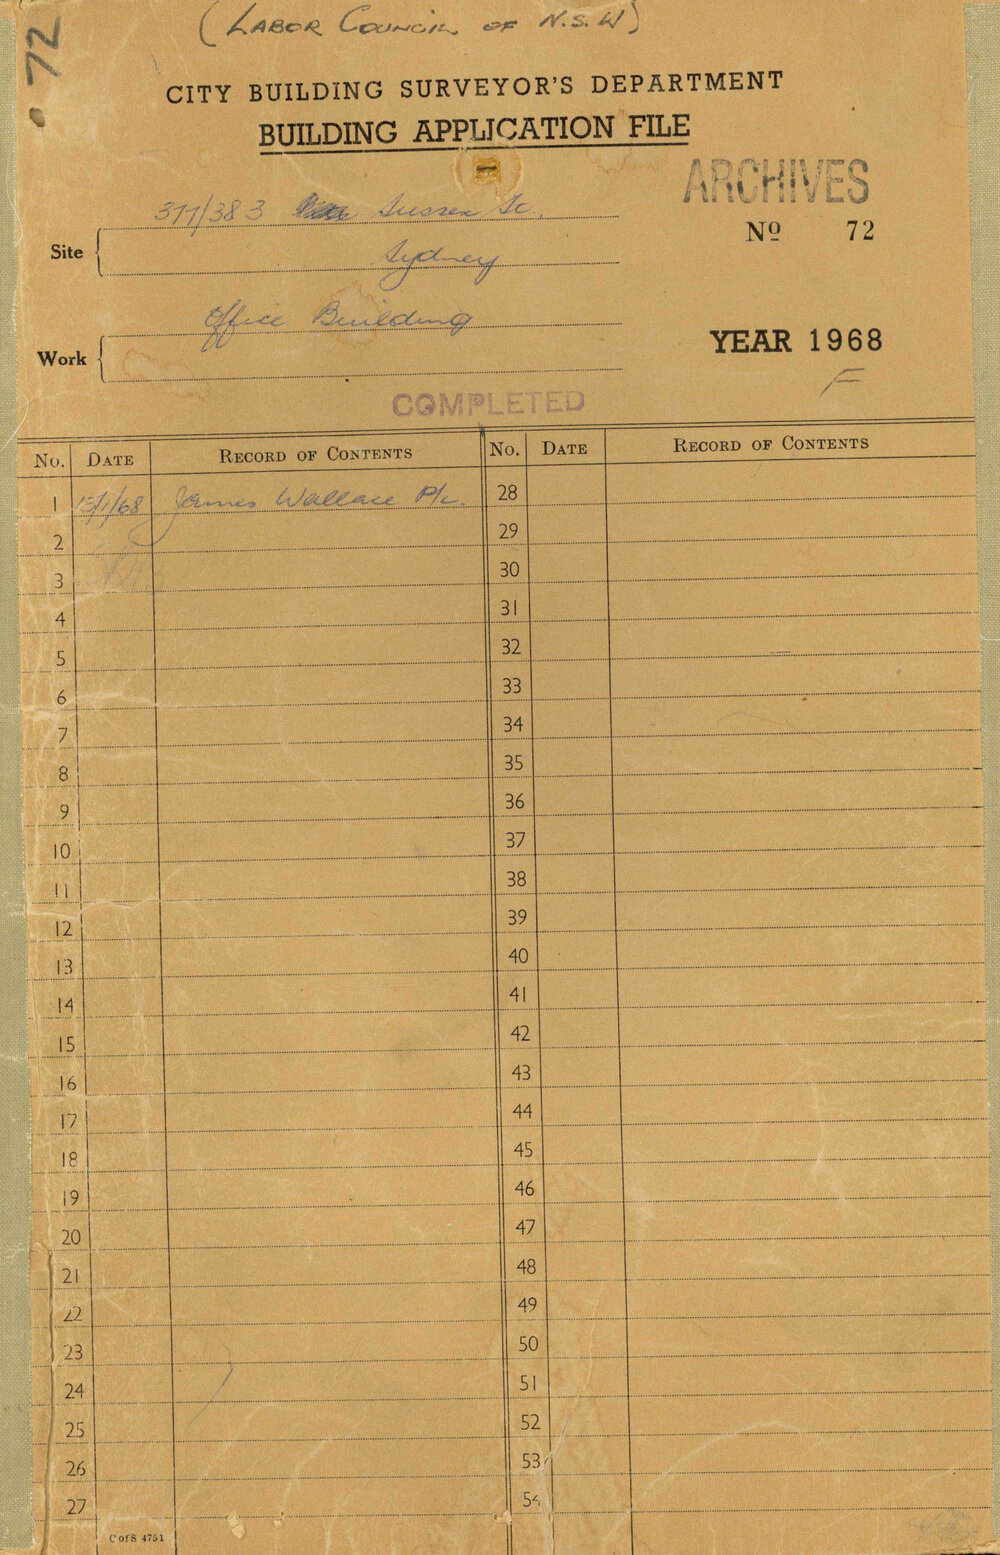 72
(LABOR COUNCIL OF N.S.W)
CITY BUILDING SURVEYOR'S DEPARTMENT
BUILDING APPLICATION FILE
ARCHIVES
No 72
377/383 Sussex St.
Site
Sydney
Office Building
Work
YEAR 1968
F
COMPLETED
No. DATE RECORD OF CONTENTS No. DATE RECORD OF CONTENTS
1 15/1/68 James Wallace P/L. 28
2 29
3 30
4 31
5 32
6 33
7 34
8 35
9 36
10 37
11 38
12 39
13 40
14 41
15 42
16 43
17 44
18 45
19 46
20 47
21 48
22 49
23 50
24 51
25 52
26 53
27 54
C of S 4751